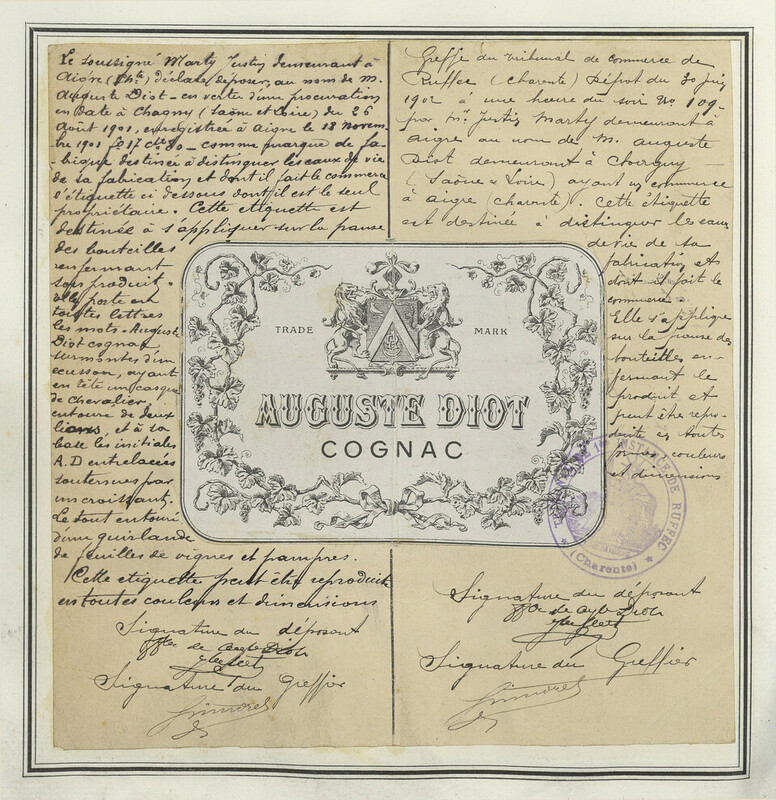 Le soussigné Marty Justin demeurant à
Aigre (Chte) déclare déposer, au nom de M.
Auguste Diot - en vertu d'une procuration
en date à Chagny (Saône et Loire) du 26
Août 1901, enregistrée à Aigre le 18 novem-
bre 1901 fo 17 - comme marque de fa-
brique destinée à distinguer les eaux de vie
de sa fabrication et dont il fait le commerce
l'étiquette ci dessous dont il est le seul
propriétaire. Cette etiquette est
destinée à s'appliquer sur la panse
des bouteilles
renfermant
son produit.
elle porte en
toutes lettres
les mots. Auguste
Diot cognac
surmontés d'un
ecusson, ayant
en tête un casque
de chevalier
entouré de deux
lions, et à sa
base les initiales
A.D entrelacées
soutenues par
un croissant.
Le tout entouré
d'une guirlande
de feuilles de vignes et pampres.
Cette etiquette peut être reproduite
en toutes couleurs et dimensions
Signature du déposant
Signature du Greffier
Greffe du Tribunal de commerce de
Ruffec (Charente) Dépôt du 30 juin
1902 à une heure du soir No 109
par Mr. Justin Marty demeurant à
aigre au nom de M. auguste
Diot demeurant à Chagny
(Saône & Loire) ayant un commerce
à aigre (charente). Cette étiquette
est destinée à distinguer les eaux
de vie de sa
fabrication et
dont il fait le
commerce.
Elle s'applique
sur la panse des
bouteilles en-
fermant le
produit et
peut être repro-
duite en toutes
couleurs
et dimensions
Signature du déposant
Signature du Greffier
TRADE MARK
AUGUSTE DIOT
COGNAC
INSTANCE DE RUFFEC
(Charente)